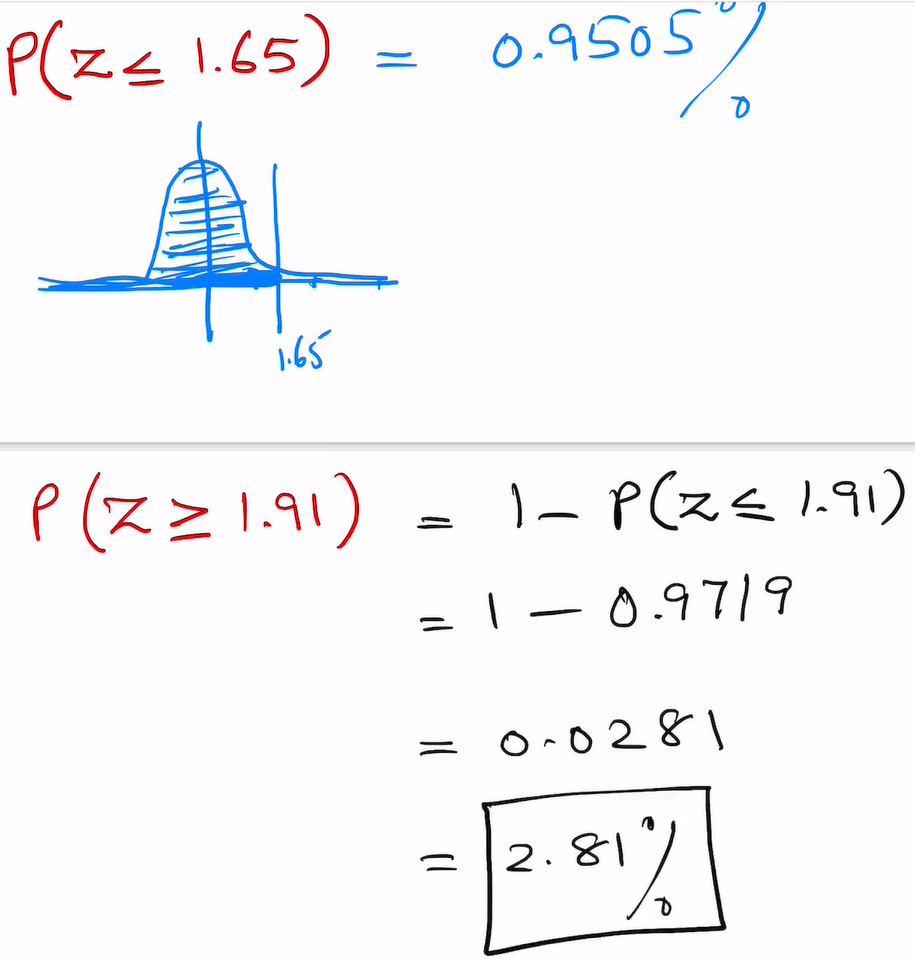 P(Z ≤ 1.65) = 0.9505%
1.65
P(Z ≥ 1.91) = 1 - P(Z ≤ 1.91)
= 1 - 0.9719
= 0.0281
= 2.81%